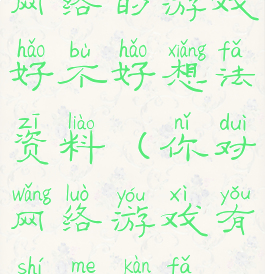 网络的游戏
hǎo bù hǎo xiǎng fǎ
好不好想法
zī liào nǐ duì
资料（你对
wǎng luò yóu xì yǒu
网络游戏有
shí me kàn fǎ